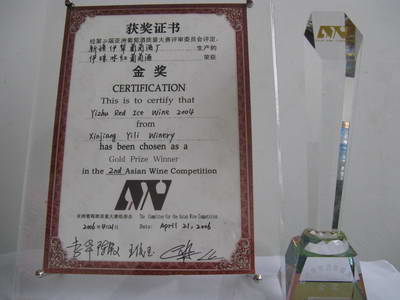 获奖证书
经第2届亚洲葡萄酒质量大赛评审委员会评定,
新疆伊犁葡萄酒厂 生产的
伊珠冰红葡萄酒 荣获
金奖
CERTIFICATION
This is to certify that
Yizhu Red Ice Wine 2004
from
Xinjiang Yili Winery
has been chosen as a
Gold Prize Winner
in the 2nd Asian Wine Competition
亚洲葡萄酒质量大赛组委会 The Committee for the Asian Wine Competition
2006年4月21日 Date: April 21, 2006